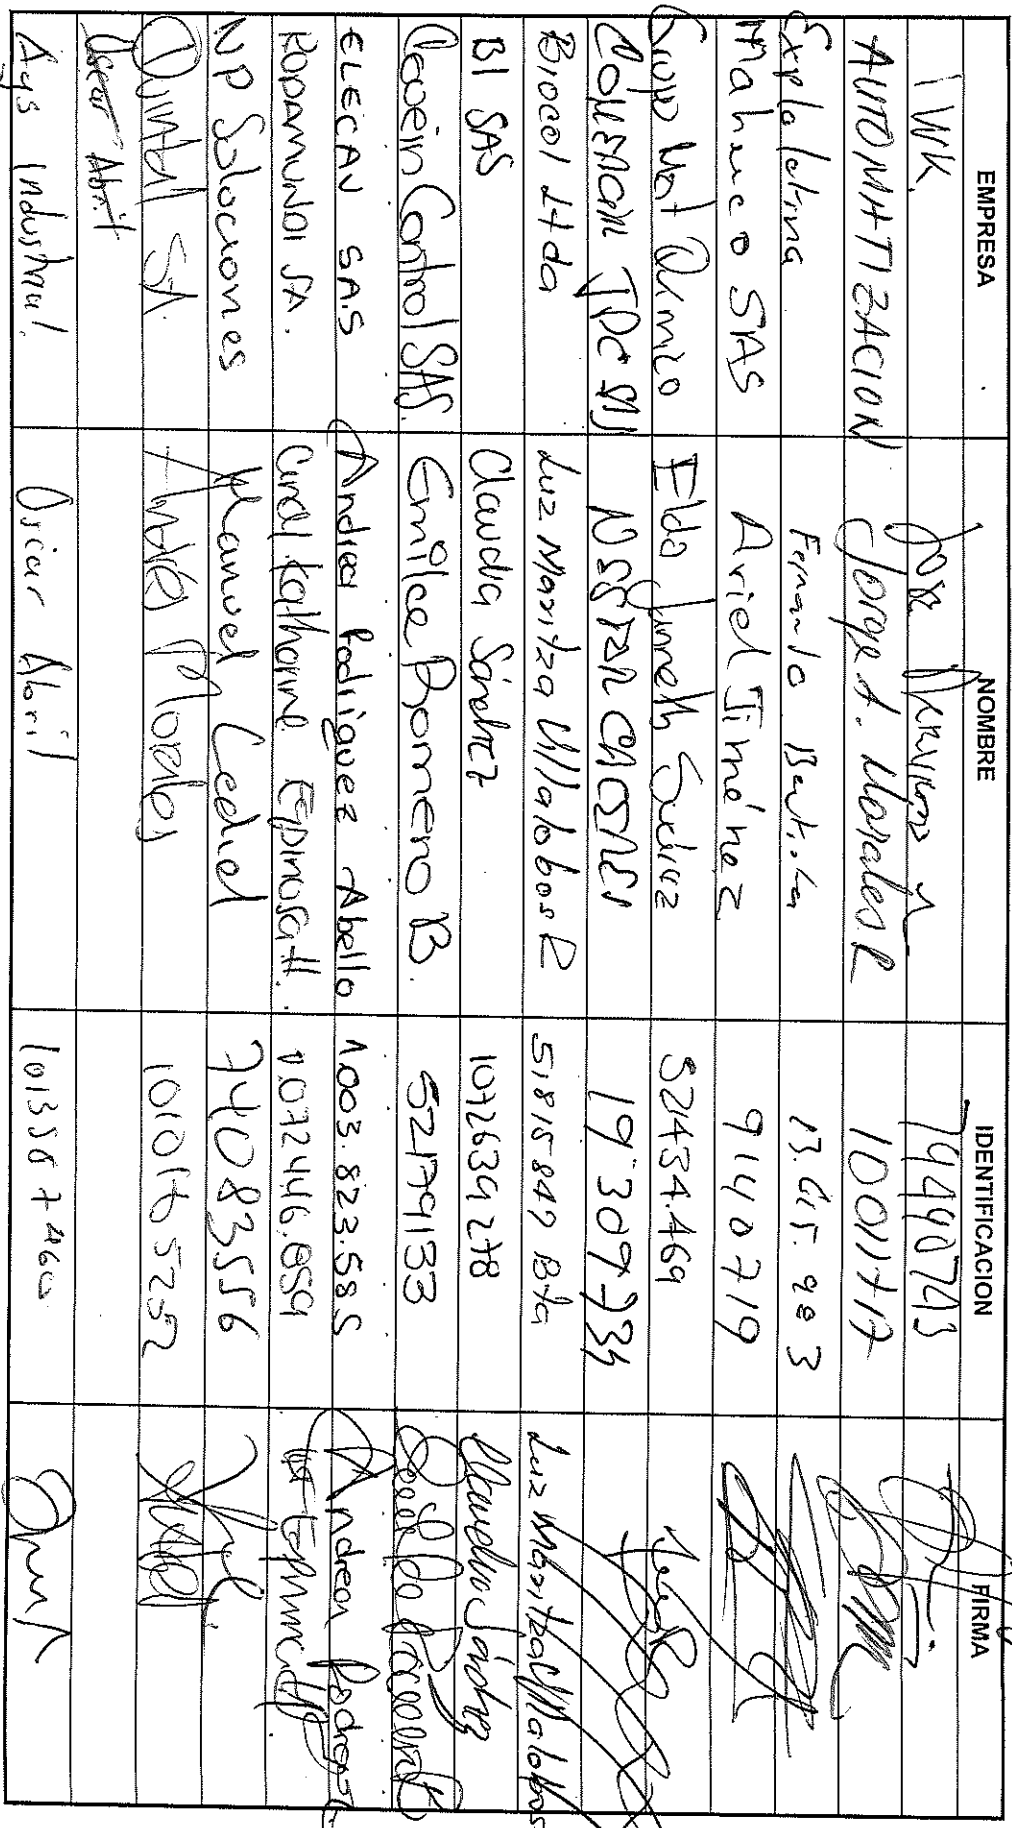 EMPRESA NOMBRE IDENTIFICACION FIRMA
IWK. Jose 79490743
AUTOMATIZACION Jorge A. Morales R 10011717
Explalatina Fernando 13.615.903
Mahuco SAS Ariel Jiménez 9140719
Grupo Mont Quimico Elda Jinneth Suárez 52454.469
19'309734
Biocol Ltda Luz Maritza Villalobos R 51815849 Bta Luz Maritza Villalobos
BI SAS Claudia Sánchez 1072639278 Claudia Sánchez
Control SAS. Emilce Romero B. 52179133
ELECAV S.A.S Andrea Rodriguez Abello 1.003.823.585 Andrea
RODAMUNDI SA. Cindy Katharine Espinosa H. 1.072446.859
NP Soluciones Manuel Cediel 74083556
Quintal SA. Andrés Morales 1010165252
Oscar Abril
Ays Industrial. Oscar Abril